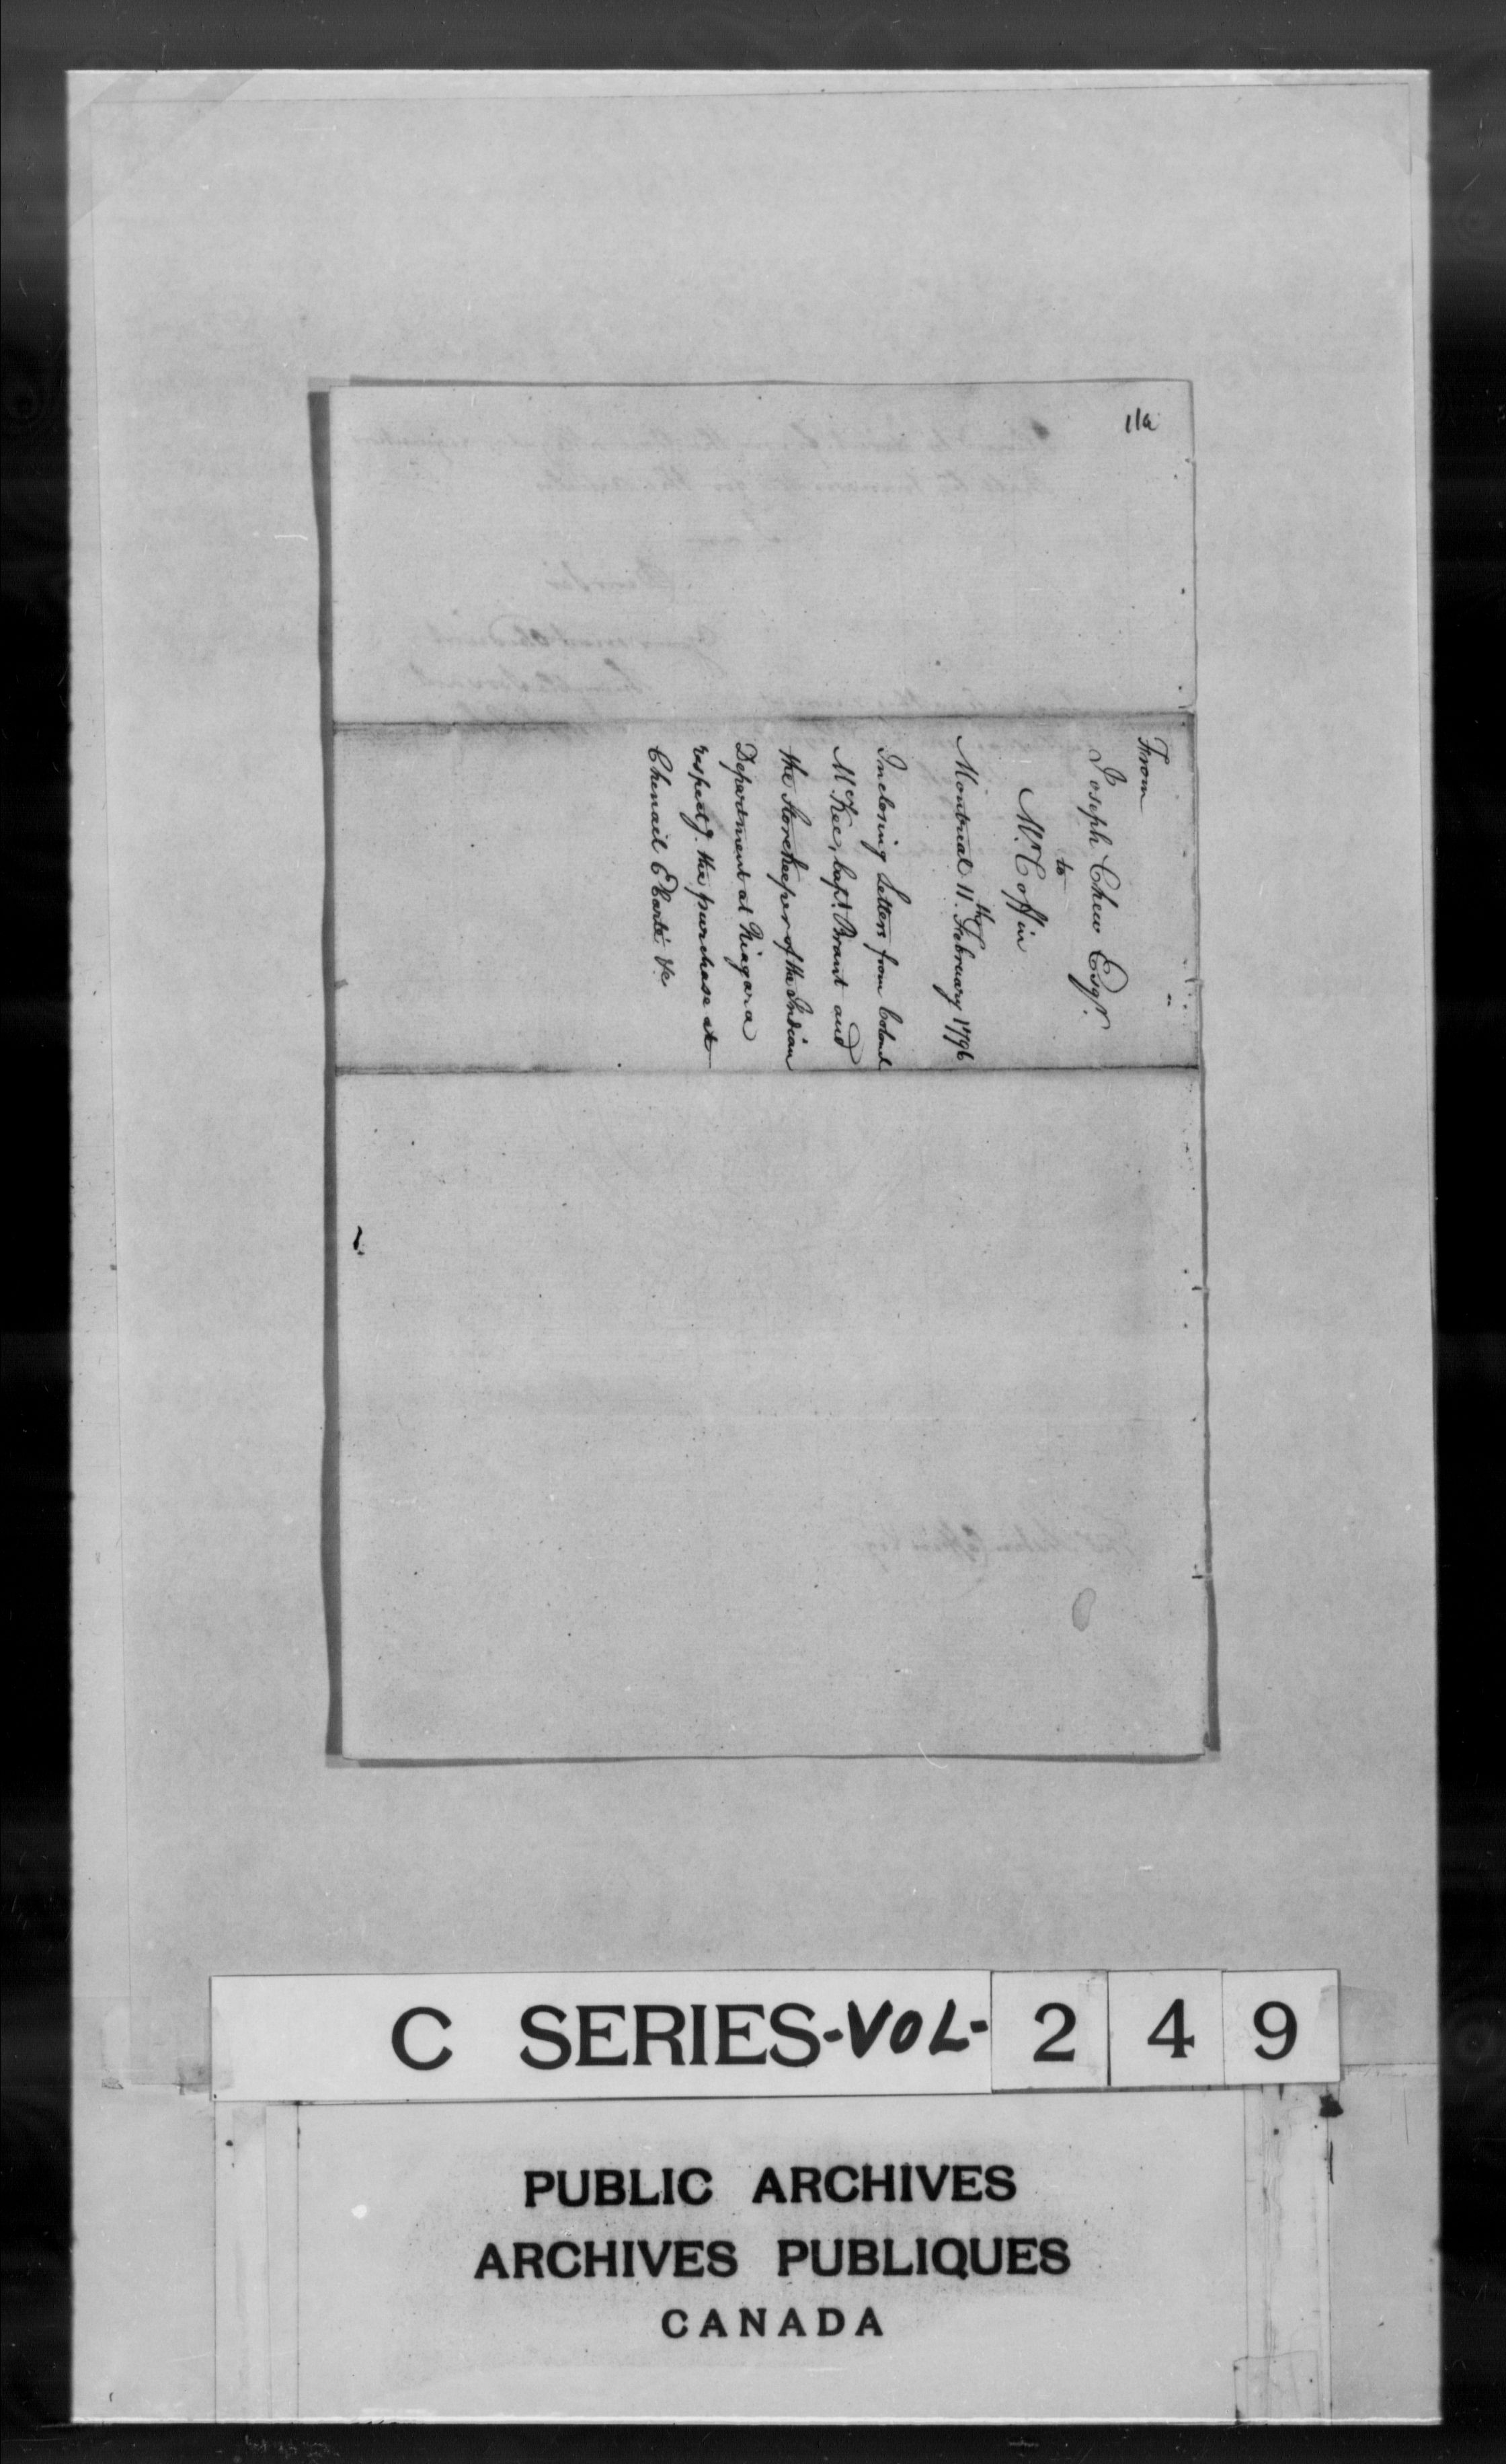 11a
From
Joseph Chew Esqr.
to
Mr. Coffin
Montreal 11th. February 1796
Inclosing Letters from Colonel
McKee, Capt. Brant and
the Storekeeper of the Indian
Department at Niagara
respectg. the purchase at
Chenail Ecarté &c
C SERIES-VOL-249
PUBLIC ARCHIVES
ARCHIVES PUBLIQUES
CANADA